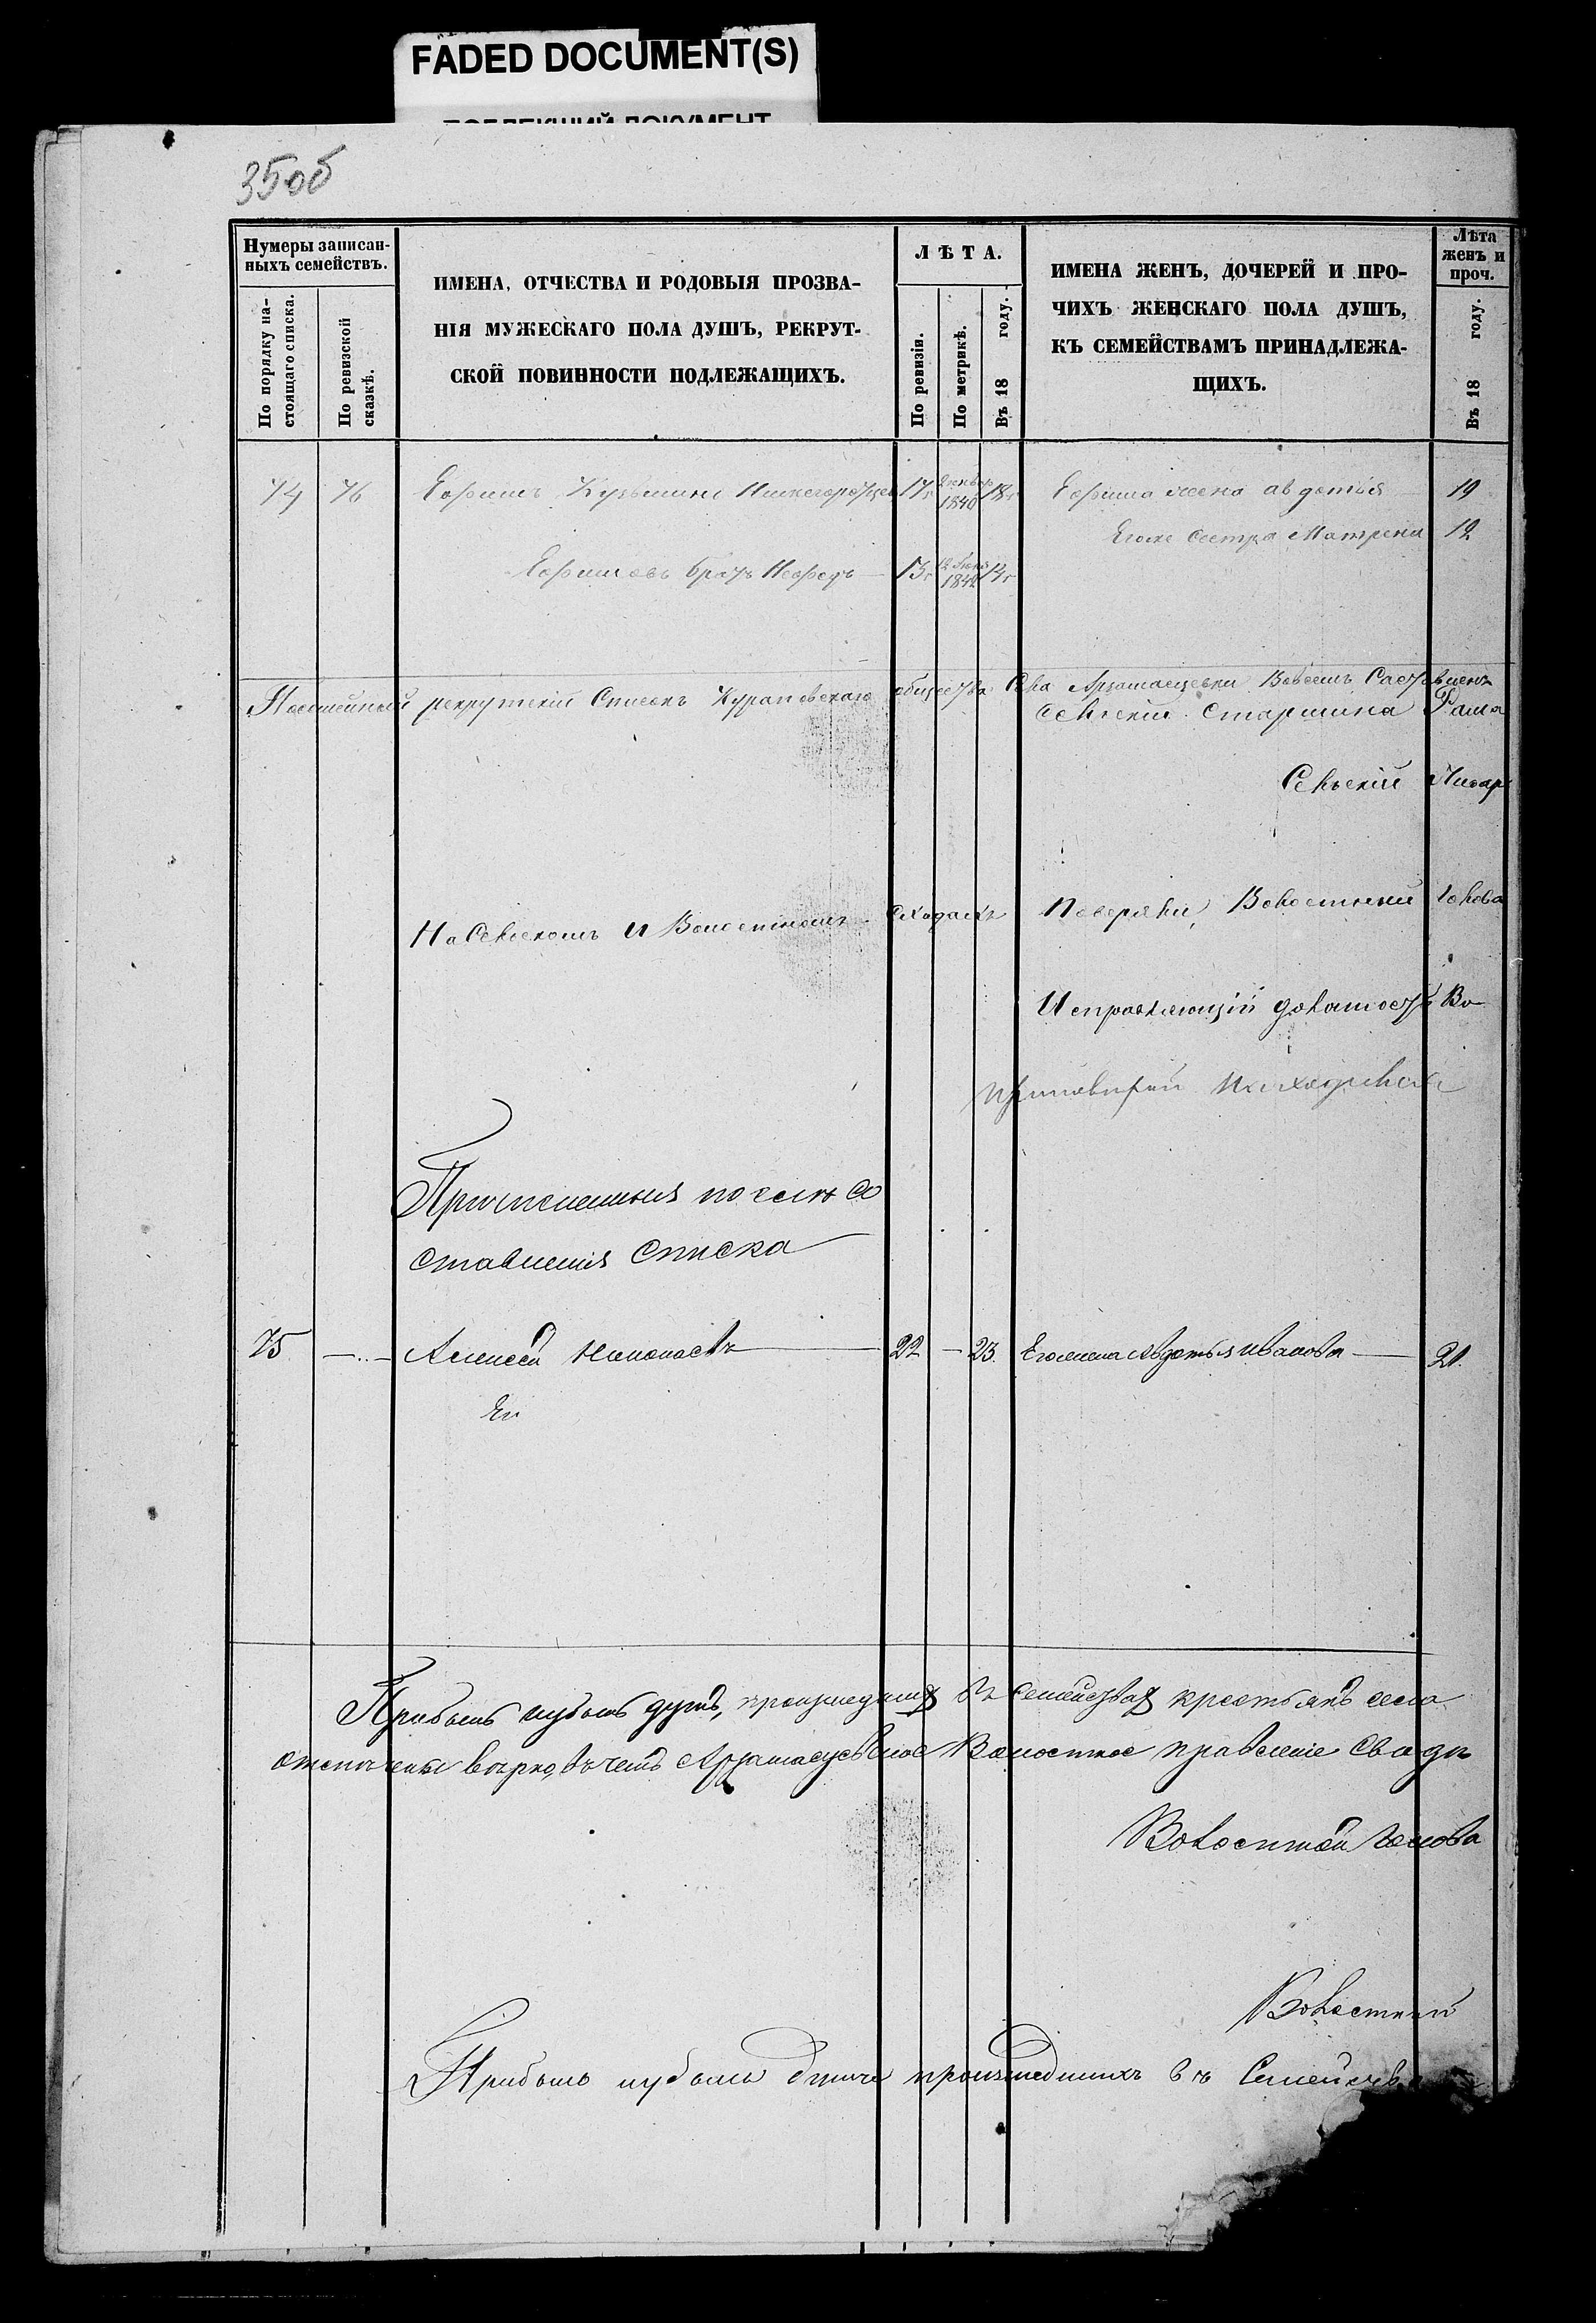 FADED DOCUMENT(S)
35об
Нумеры записан-
ныхъ семействъ.
По порядку на-
стоящаго списка.
По ревизской
сказкѣ.
ИМЕНА, ОТЧЕСТВА И РОДОВЫЯ ПРОЗВА-
НІЯ МУЖЕСКАГО ПОЛА ДУШЪ, РЕКРУТ-
СКОЙ ПОВИННОСТИ ПОДЛЕЖАЩИХЪ.
ЛѢТА.
По ревизіи.
По метрикѣ.
Въ 18 году.
ИМЕНА ЖЕНЪ, ДОЧЕРЕЙ И ПРО-
ЧИХЪ ЖЕНСКАГО ПОЛА ДУШЪ,
КЪ СЕМЕЙСТВАМЪ ПРИНАДЛЕЖА-
ЩИХЪ.
Лѣта
женъ и
проч.
Въ 18 году.
74 76 Ефимъ Кузьминъ 17 1840 18 Ефима жена авдотья 19
Егоже сестра Матрена 12
Ефимовъ братъ 13 1842 14
Посемейной рекрутскій Списокъ общества Села Составленъ
Сельскій Старшина
Сельскій Писарь
На Сельскомъ и Волостномъ Сходахъ Поверяли Волостный Голова
Исправляющій должность Во
Приписанныя после со
ставленія Списка
75 Алексей 22 — 23. Его жена Авдотья Иванова 21.
Ег
Прибыль иубыль душъ, произшедших въ семействах крестьянъ села
отмечены верно, въ чемъ Волостное правление Сви де
Волостной Голова
Волостный
Прибыль иубыль душъ произшедшихъ въ Семейств